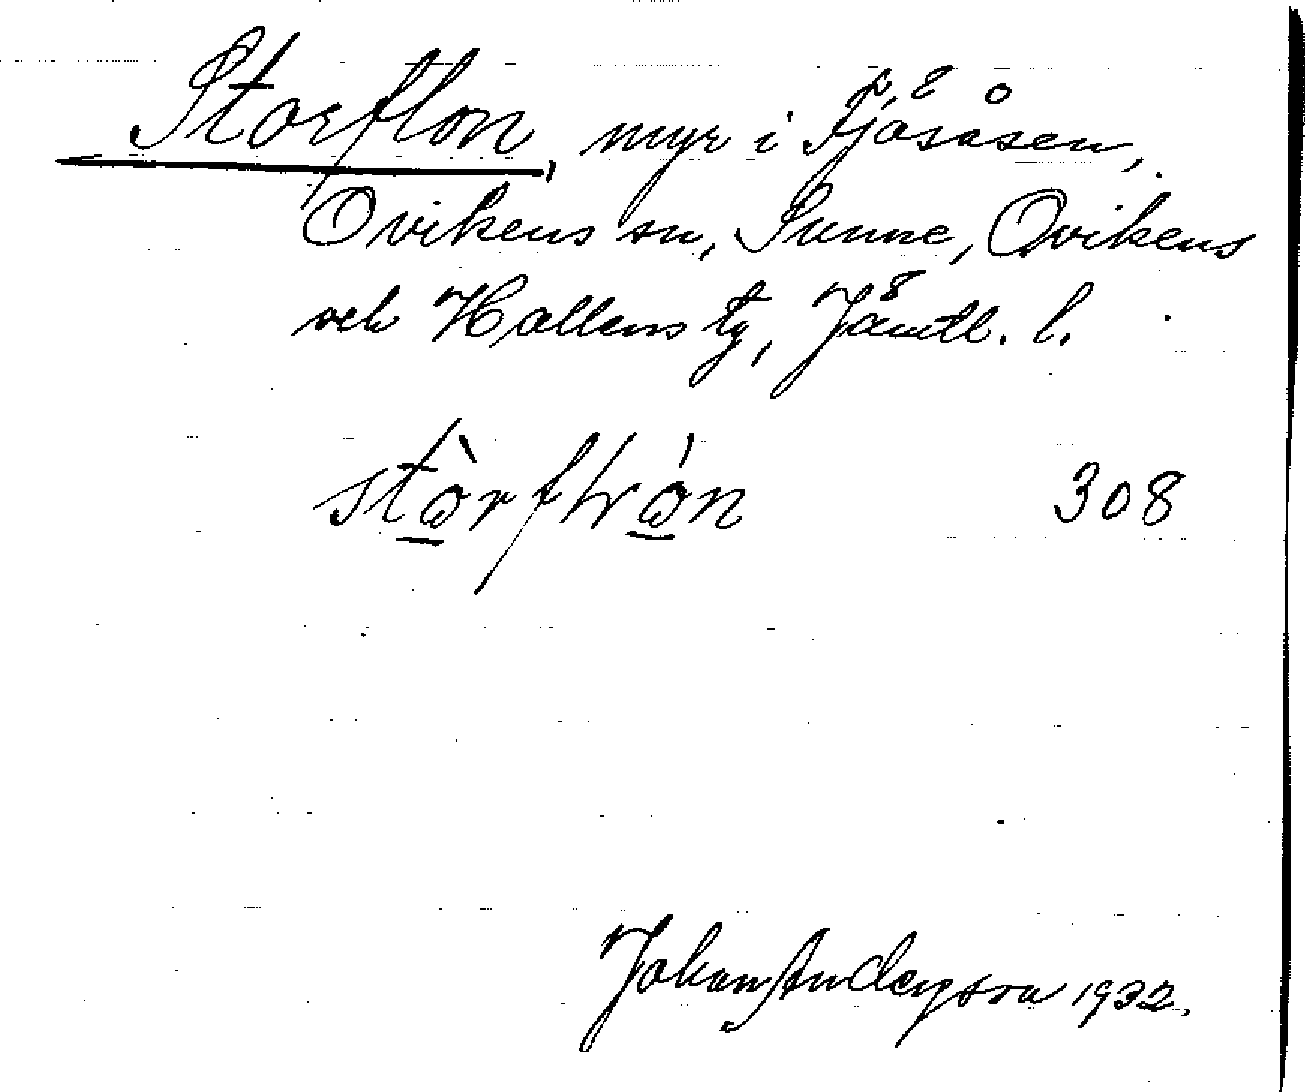 Storflon, myr i Fjösåsen,
Ovikens sn, Sunne, Ovikens
och Hallens tg, Jämtl. l.
308
Johan Anderson 1932.